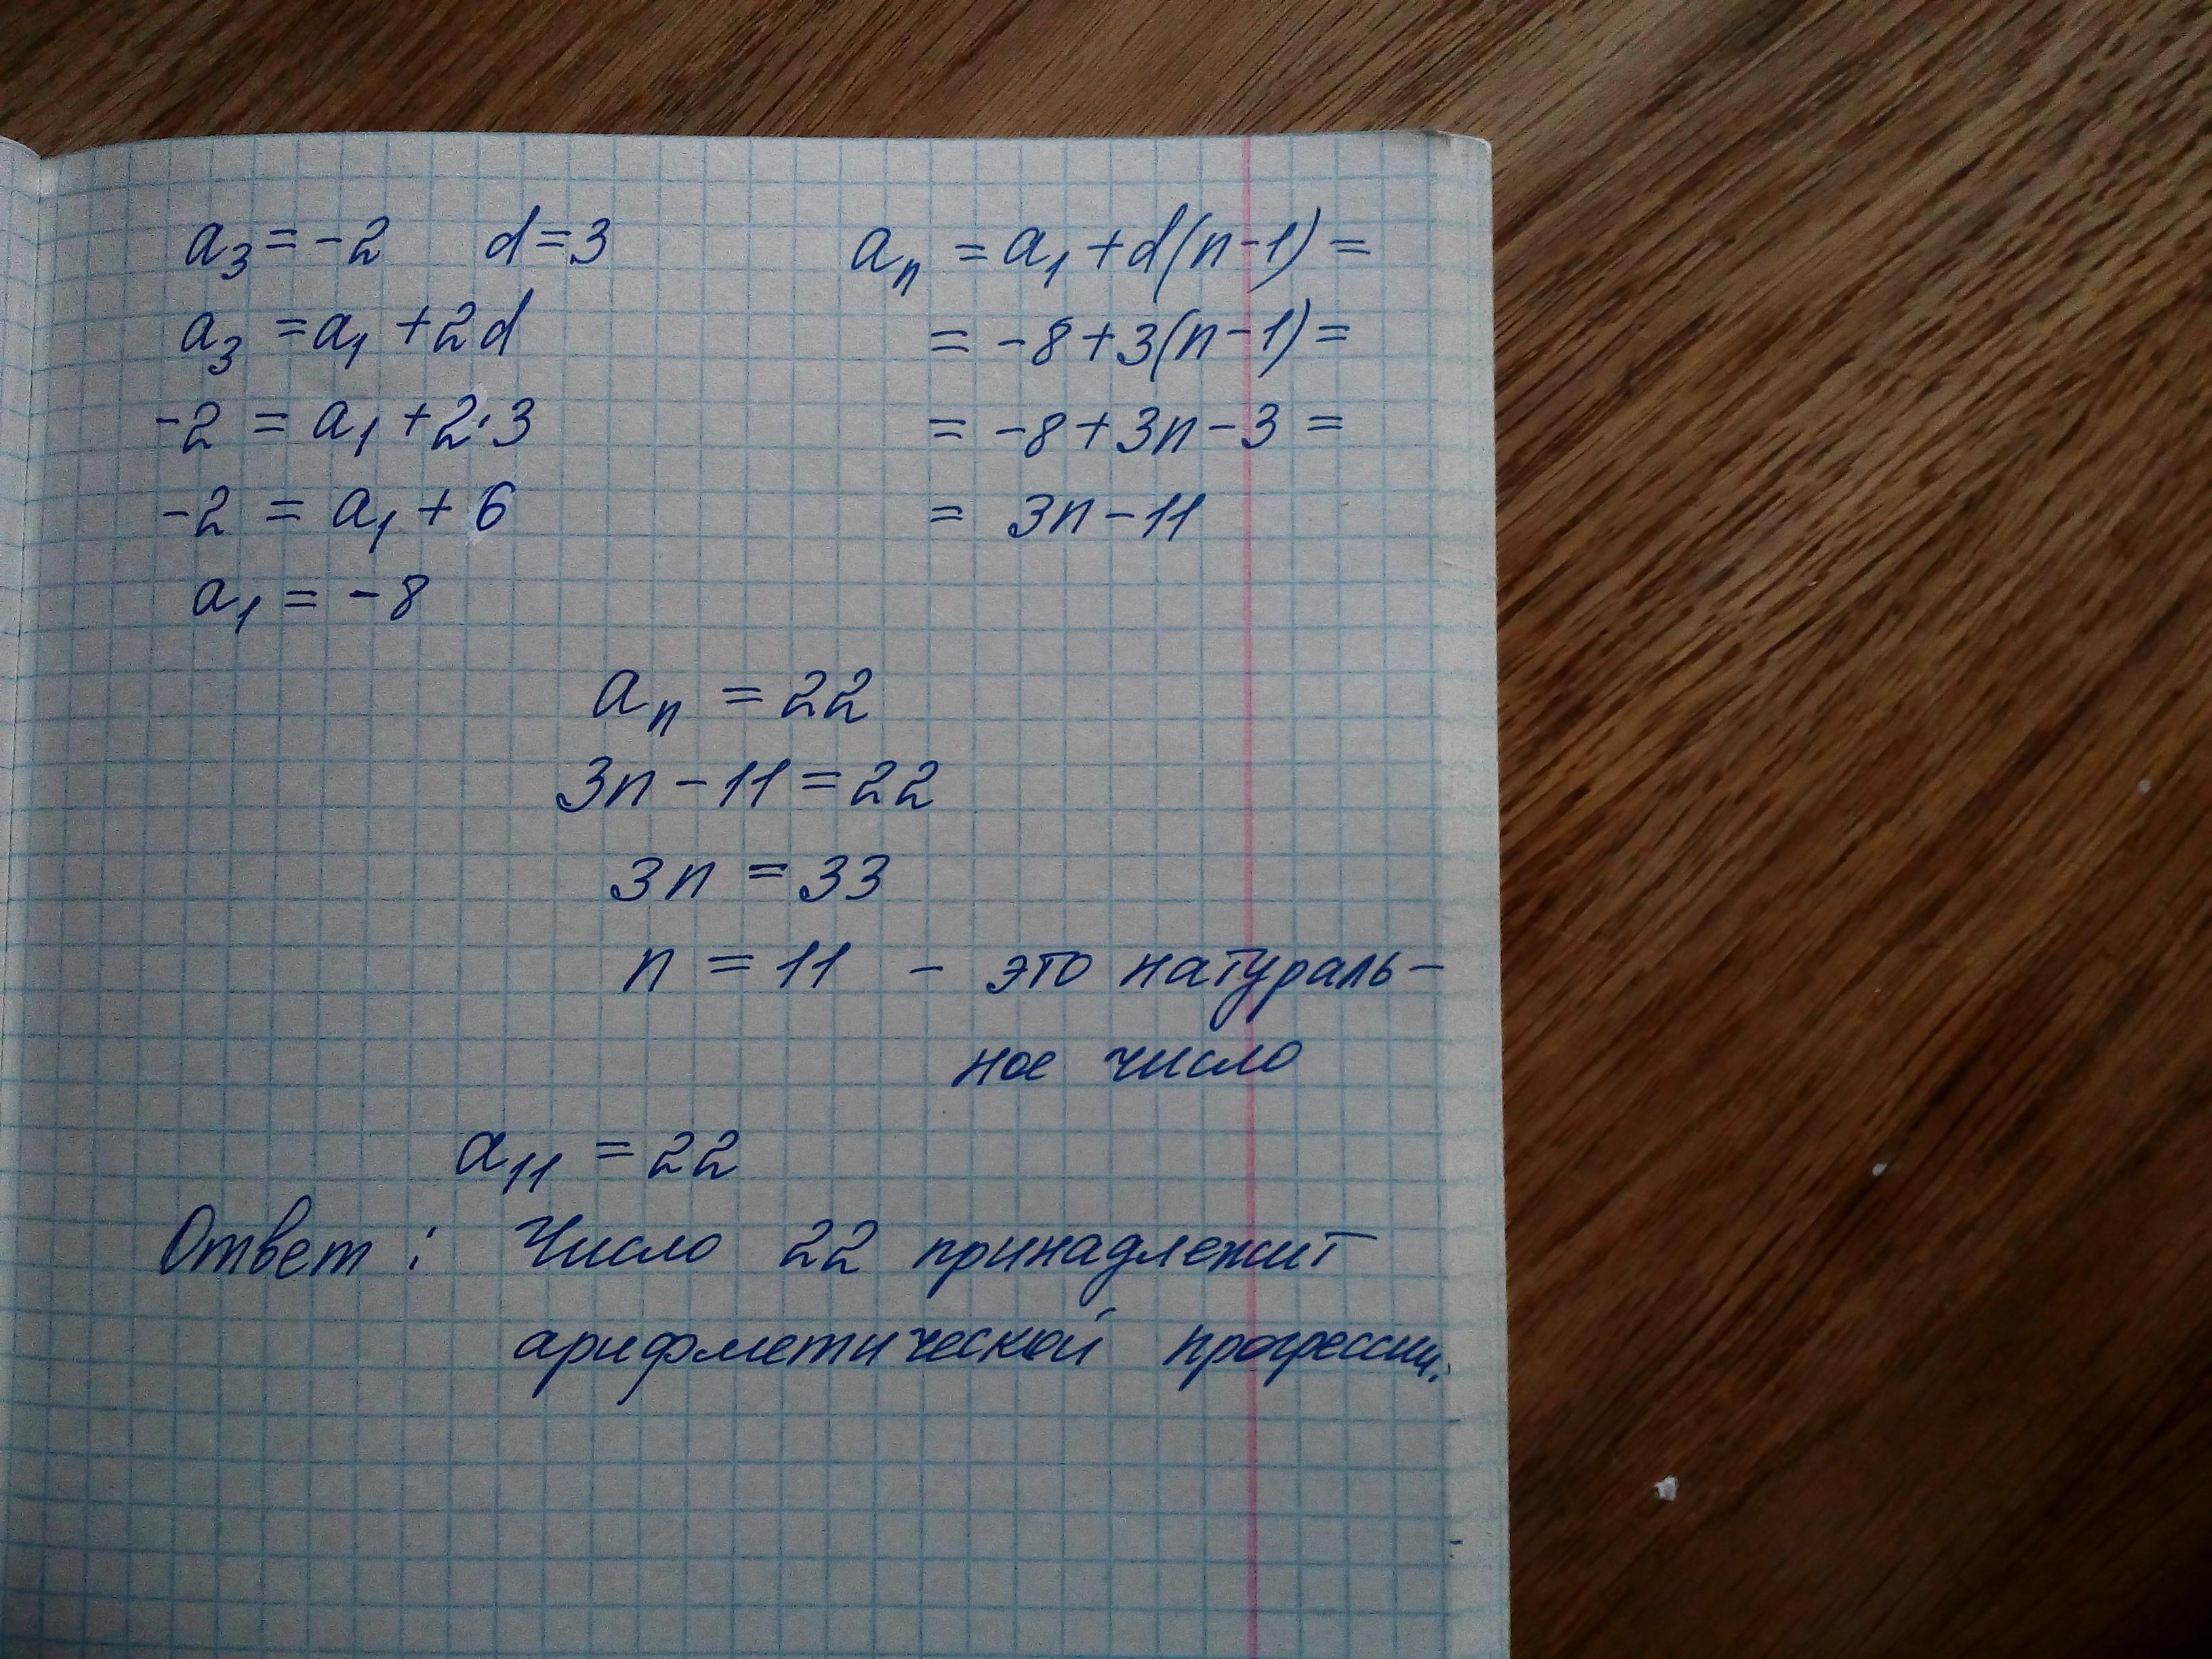 a₃ = -2 d = 3
a₃ = a₁ + 2d
-2 = a₁ + 2·3
-2 = a₁ + 6
a₁ = -8
aₙ = a₁ + d(n-1) =
= -8 + 3(n-1) =
= -8 + 3n - 3 =
= 3n - 11
aₙ = 22
3n - 11 = 22
3n = 33
n = 11 - это натураль-
ное число
a₁₁ = 22
Ответ: Число 22 принадлежит
арифметической прогрессии.